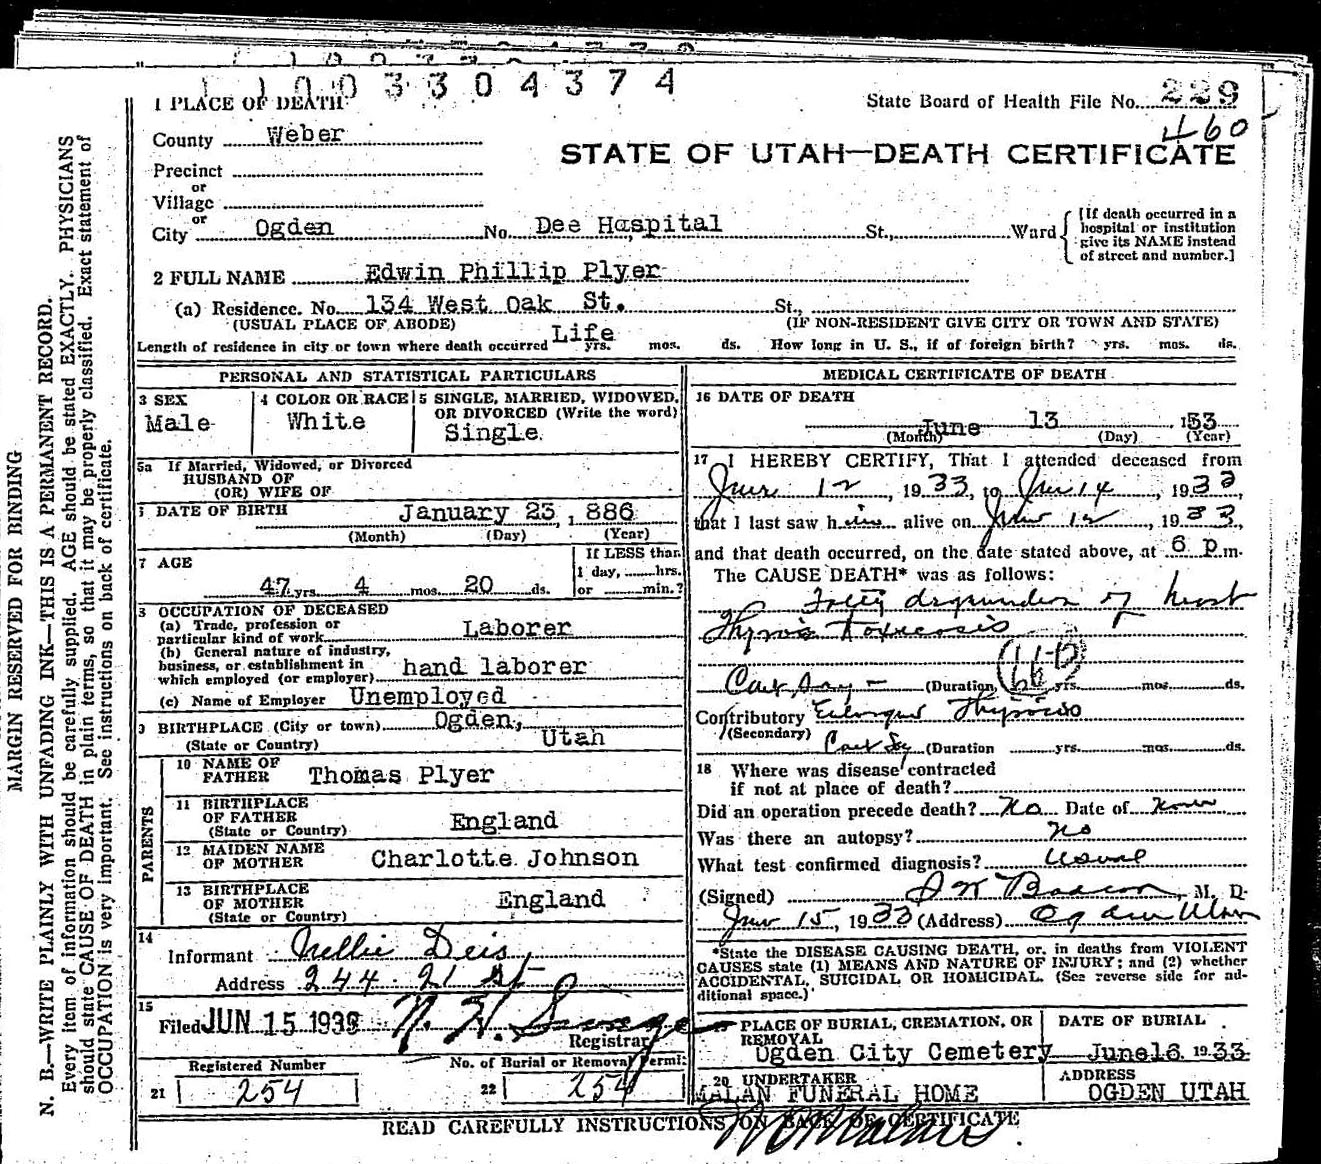 1003304374
1 PLACE OF DEATH
State Board of Health File No. 229
460
County Weber
STATE OF UTAH—DEATH CERTIFICATE
Precinct
or
Village
or
City Ogden No. Dee Hospital St., Ward
[If death occurred in a
hospital or institution
give its NAME instead
of street and number.]
2 FULL NAME Edwin Phillip Plyer
(a) Residence. No. 134 West Oak St. St.,
(USUAL PLACE OF ABODE) (IF NON-RESIDENT GIVE CITY OR TOWN AND STATE)
Length of residence in city or town where death occurred Life yrs. mos. ds. How long in U. S., if of foreign birth? yrs. mos. ds.
PERSONAL AND STATISTICAL PARTICULARS
3 SEX
Male
4 COLOR OR RACE
White
5 SINGLE, MARRIED, WIDOWED,
OR DIVORCED (Write the word)
Single
5a If Married, Widowed, or Divorced
HUSBAND OF
(OR) WIFE OF
DATE OF BIRTH January 23, 1886
(Month) (Day) (Year)
7 AGE
47 yrs. 4 mos. 20 ds.
If LESS than
1 day, hrs.
or min.?
8 OCCUPATION OF DECEASED
(a) Trade, profession or
particular kind of work Laborer
(b) General nature of industry,
business, or establishment in
which employed (or employer) hand laborer
(c) Name of Employer Unemployed
9 BIRTHPLACE (City or town) Ogden,
(State or Country) Utah
PARENTS
10 NAME OF
FATHER Thomas Plyer
11 BIRTHPLACE
OF FATHER
(State or Country) England
12 MAIDEN NAME
OF MOTHER Charlotte Johnson
13 BIRTHPLACE
OF MOTHER
(State or Country) England
14
Informant Nellie Deis
Address 244 21 st
15
Filed JUN 15 1933
Registrar
Registered Number
21 254
No. of Burial or Removal Permit
22 254
MEDICAL CERTIFICATE OF DEATH
16 DATE OF DEATH
June 13, 1933
(Month) (Day) (Year)
17 I HEREBY CERTIFY, That I attended deceased from
June 12, 1933, to June 14, 1933,
that I last saw him alive on June 12, 1933,
and that death occurred, on the date stated above, at 6 p.m.
The CAUSE DEATH* was as follows:
Fatty degeneration of heart
(Duration yrs. mos. ds.
Contributory
(Secondary)
(Duration yrs. mos. ds.
18 Where was disease contracted
if not at place of death?
Did an operation precede death? No Date of None
Was there an autopsy? no
What test confirmed diagnosis? usual
(Signed) M. D.
June 15, 1933 (Address) Ogden Utah
*State the DISEASE CAUSING DEATH, or, in deaths from VIOLENT
CAUSES state (1) MEANS AND NATURE OF INJURY; and (2) whether
ACCIDENTAL, SUICIDAL OR HOMICIDAL. (See reverse side for ad-
ditional space.)
PLACE OF BURIAL, CREMATION, OR
REMOVAL
Ogden City Cemetery
DATE OF BURIAL
June 16 1933
20 UNDERTAKER
MALAN FUNERAL HOME
ADDRESS
OGDEN UTAH
READ CAREFULLY INSTRUCTIONS ON BACK OF CERTIFICATE
MARGIN RESERVED FOR BINDING
N. B.—WRITE PLAINLY WITH UNFADING INK—THIS IS A PERMANENT RECORD.
Every item of information should be carefully supplied. AGE should be stated EXACTLY. PHYSICIANS
should state CAUSE OF DEATH in plain terms, so that it may be properly classified. Exact statement of
OCCUPATION is very important. See instructions on back of certificate.